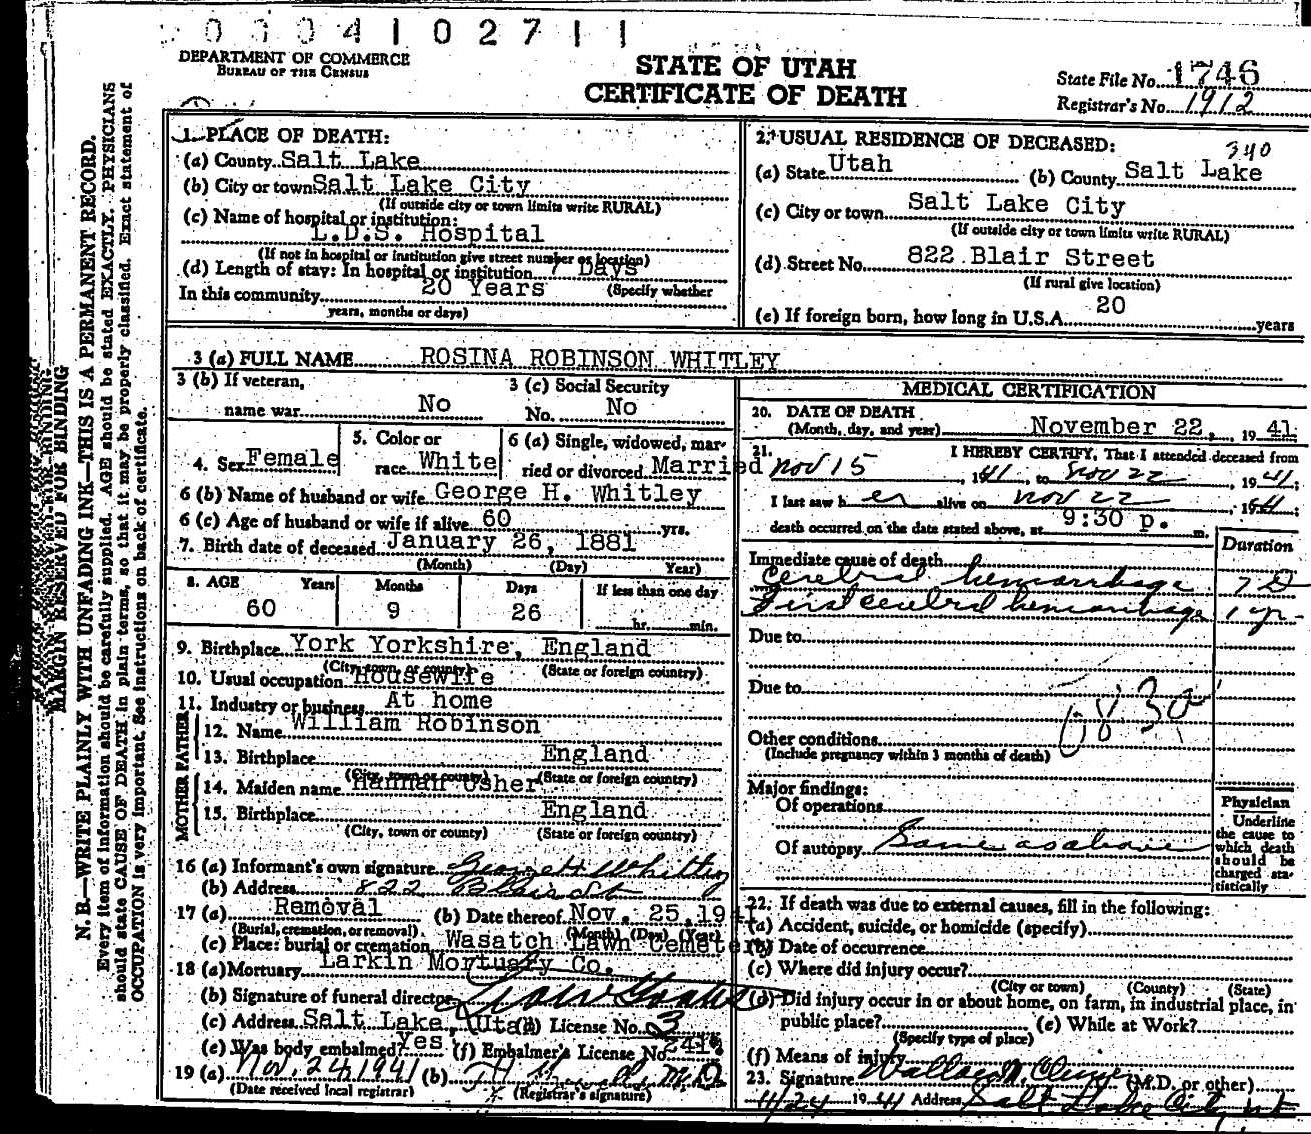 0 0 0 4 1 0 2 7 1 1
DEPARTMENT OF COMMERCE
BUREAU OF THE CENSUS
STATE OF UTAH
CERTIFICATE OF DEATH
State File No. 1746
Registrar's No. 1912
MARGIN RESERVED FOR BINDING
N. B.—WRITE PLAINLY WITH UNFADING INK—THIS IS A PERMANENT RECORD.
Every item of information should be carefully supplied. AGE should be stated EXACTLY. PHYSICIANS
should state CAUSE OF DEATH in plain terms, so that it may be properly classified. Exact statement of
OCCUPATION is very important. See instructions on back of certificate.
1. PLACE OF DEATH:
(a) County Salt Lake
(b) City or town Salt Lake City
(If outside city or town limits write RURAL)
(c) Name of hospital or institution:
L.D.S. Hospital
(If not in hospital or institution give street number or location)
(d) Length of stay: In hospital or institution 7 Days
In this community 20 Years (Specify whether
years, months or days)
2. USUAL RESIDENCE OF DECEASED:
340
(a) State Utah (b) County Salt Lake
(c) City or town Salt Lake City
(If outside city or town limits write RURAL)
(d) Street No. 822 Blair Street
(If rural give location)
(e) If foreign born, how long in U.S.A. 20 years
3 (a) FULL NAME ROSINA ROBINSON WHITLEY
3 (b) If veteran,
name war No
3 (c) Social Security
No. No
4. Sex Female
5. Color or
race White
6 (a) Single, widowed, mar-
ried or divorced Married
6 (b) Name of husband or wife George H. Whitley
6 (c) Age of husband or wife if alive 60 yrs.
7. Birth date of deceased January 26, 1881
(Month) (Day) Year)
8. AGE Years Months Days If less than one day
60 9 26 hr. min.
9. Birthplace York Yorkshire, England
(City, town, or county) (State or foreign country)
10. Usual occupation Housewife
11. Industry or business At home
FATHER
12. Name William Robinson
13. Birthplace England
(City, town or county) (State or foreign country)
MOTHER
14. Maiden name Hannah Usher
15. Birthplace England
(City, town or county) (State or foreign country)
16 (a) Informant's own signature George H Whitley
(b) Address 822 Blair St
17 (a) Removal (b) Date thereof Nov. 25, 1941
(Burial, cremation, or removal) (Month) (Day) (Year)
(c) Place: burial or cremation Wasatch Lawn Cemetery
18 (a) Mortuary Larkin Mortuary Co.
(b) Signature of funeral director
(c) Address Salt Lake, Utah (d) License No. 3
(e) Was body embalmed? Yes (f) Embalmer's License No. 41
19 (a) Nov. 24, 1941 (b) M.D.
(Date received local registrar) (Registrar's signature)
MEDICAL CERTIFICATION
20. DATE OF DEATH
(Month, day, and year) November 22, 1941
21. I HEREBY CERTIFY, That I attended deceased from
Nov 15, 1941, to Nov 22, 1941;
I last saw her alive on Nov 22, 1941;
death occurred on the date stated above, at 9:30 p. m.
Duration
Immediate cause of death
Cerebral hemorrhage 7 D
First cerebral hemorrhage 1 yr
Due to
Due to
083a
Other conditions
(Include pregnancy within 3 months of death)
Major findings:
Of operations
Of autopsy Same as above
Physician
Underline
the cause to
which death
should be
charged sta-
tistically
22. If death was due to external causes, fill in the following:
(a) Accident, suicide, or homicide (specify)
(b) Date of occurrence
(c) Where did injury occur?
(City or town) (County) (State)
(d) Did injury occur in or about home, on farm, in industrial place, in
public place? (e) While at Work?
(Specify type of place)
(f) Means of injury
23. Signature (M.D. or other)
11/24 1941 Address Salt Lake City Ut